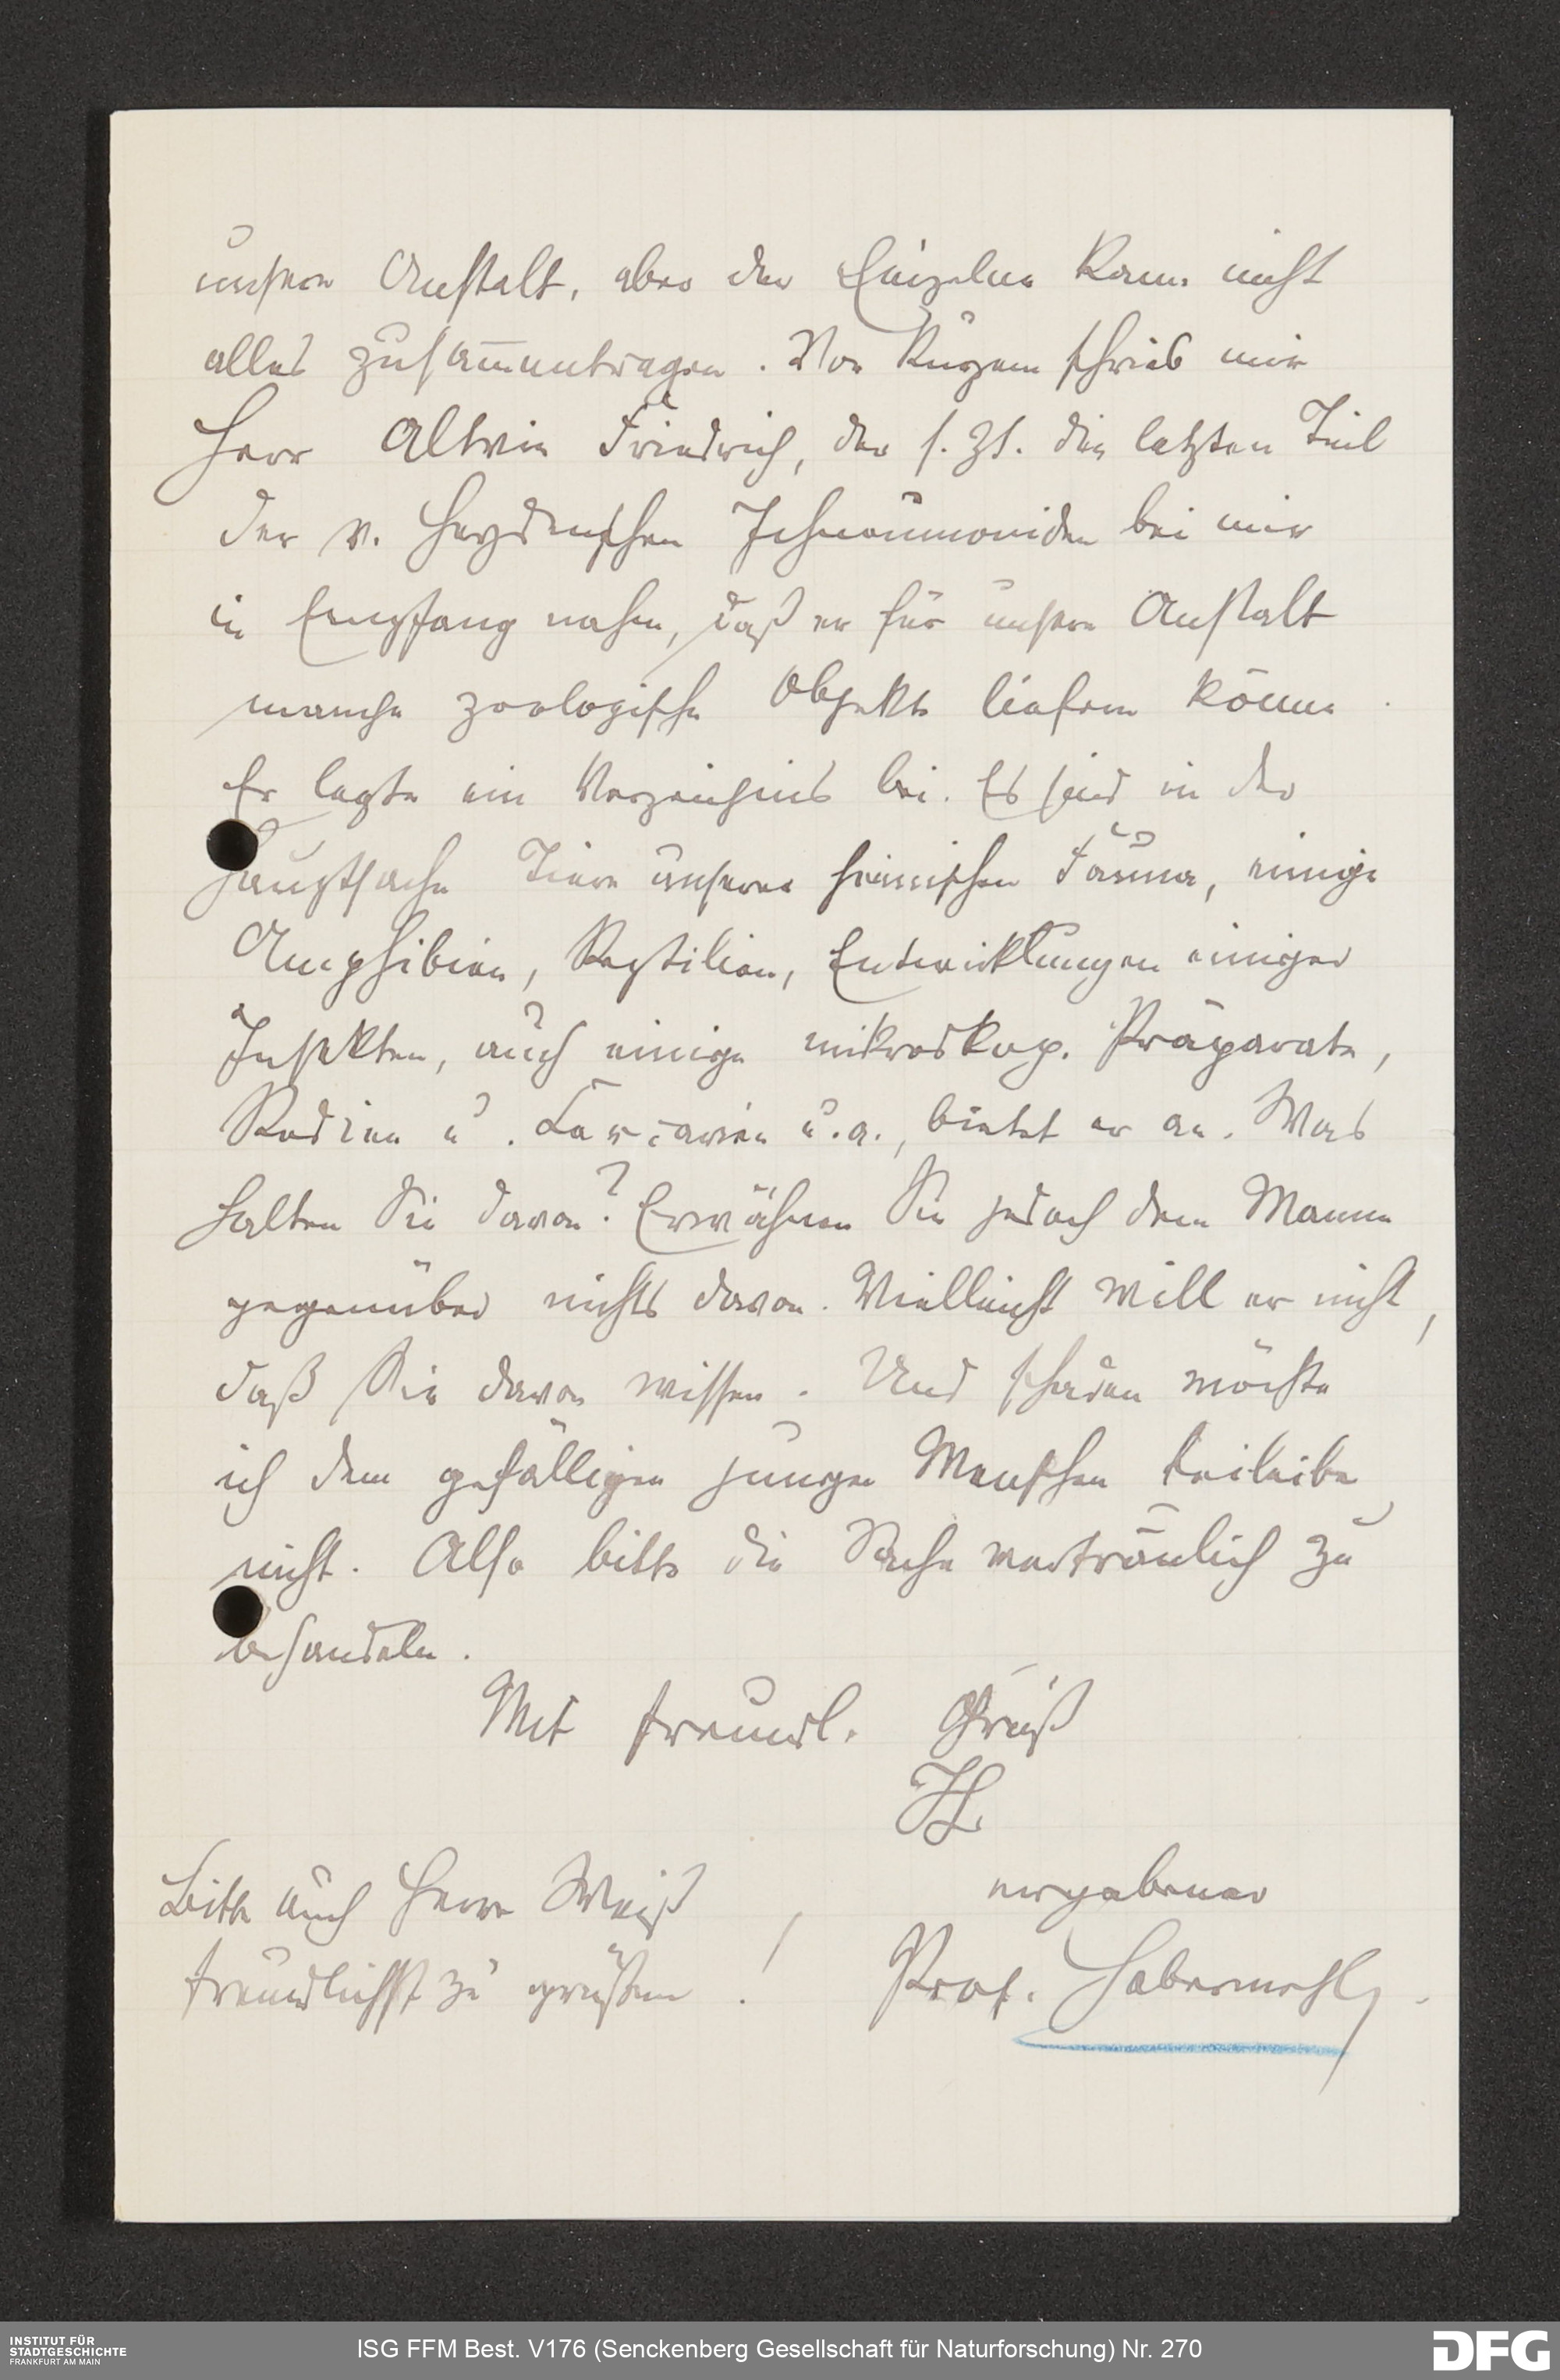 unsere Anstalt, aber der Einzelne kann nicht
alles zusammentragen. Vor Kurzem schrieb mir
Herr Alwin Friedrich, der s. Zt. den letzten Teil
der v. Heyden'schen Ichneumoniden bei mir
in Empfang nahm, daß er für unsere Anstalt
manche zoologische Objekte liefern könne.
Er legte ein Verzeichnis bei. Es sind in der
Hauptsache Tiere unserer heimischen Fauna, einige
Amphibien, Reptilien, Entwicklungen einiger
Insekten, auch einige mikroskop. Präparate,
Redien u. Cercarien u. a., bietet er an. Was
halten Sie davon? Erwähnen Sie jedoch dem Manne
gegenüber nichts davon. Vielleicht will er nicht,
daß Sie davon wissen. Und schaden möchte
ich dem gefälligen jungen Menschen beileibe
nicht. Also bitte die Sache vertraulich zu
behandeln.
Mit freundl. Gruß
Ihr
ergebener
Prof. Habermehl.
Bitte auch Herrn Weiß
freundlichst zu grüßen!
INSTITUT FÜR
STADTGESCHICHTE
FRANKFURT AM MAIN
ISG FFM Best. V176 (Senckenberg Gesellschaft für Naturforschung) Nr. 270
DFG